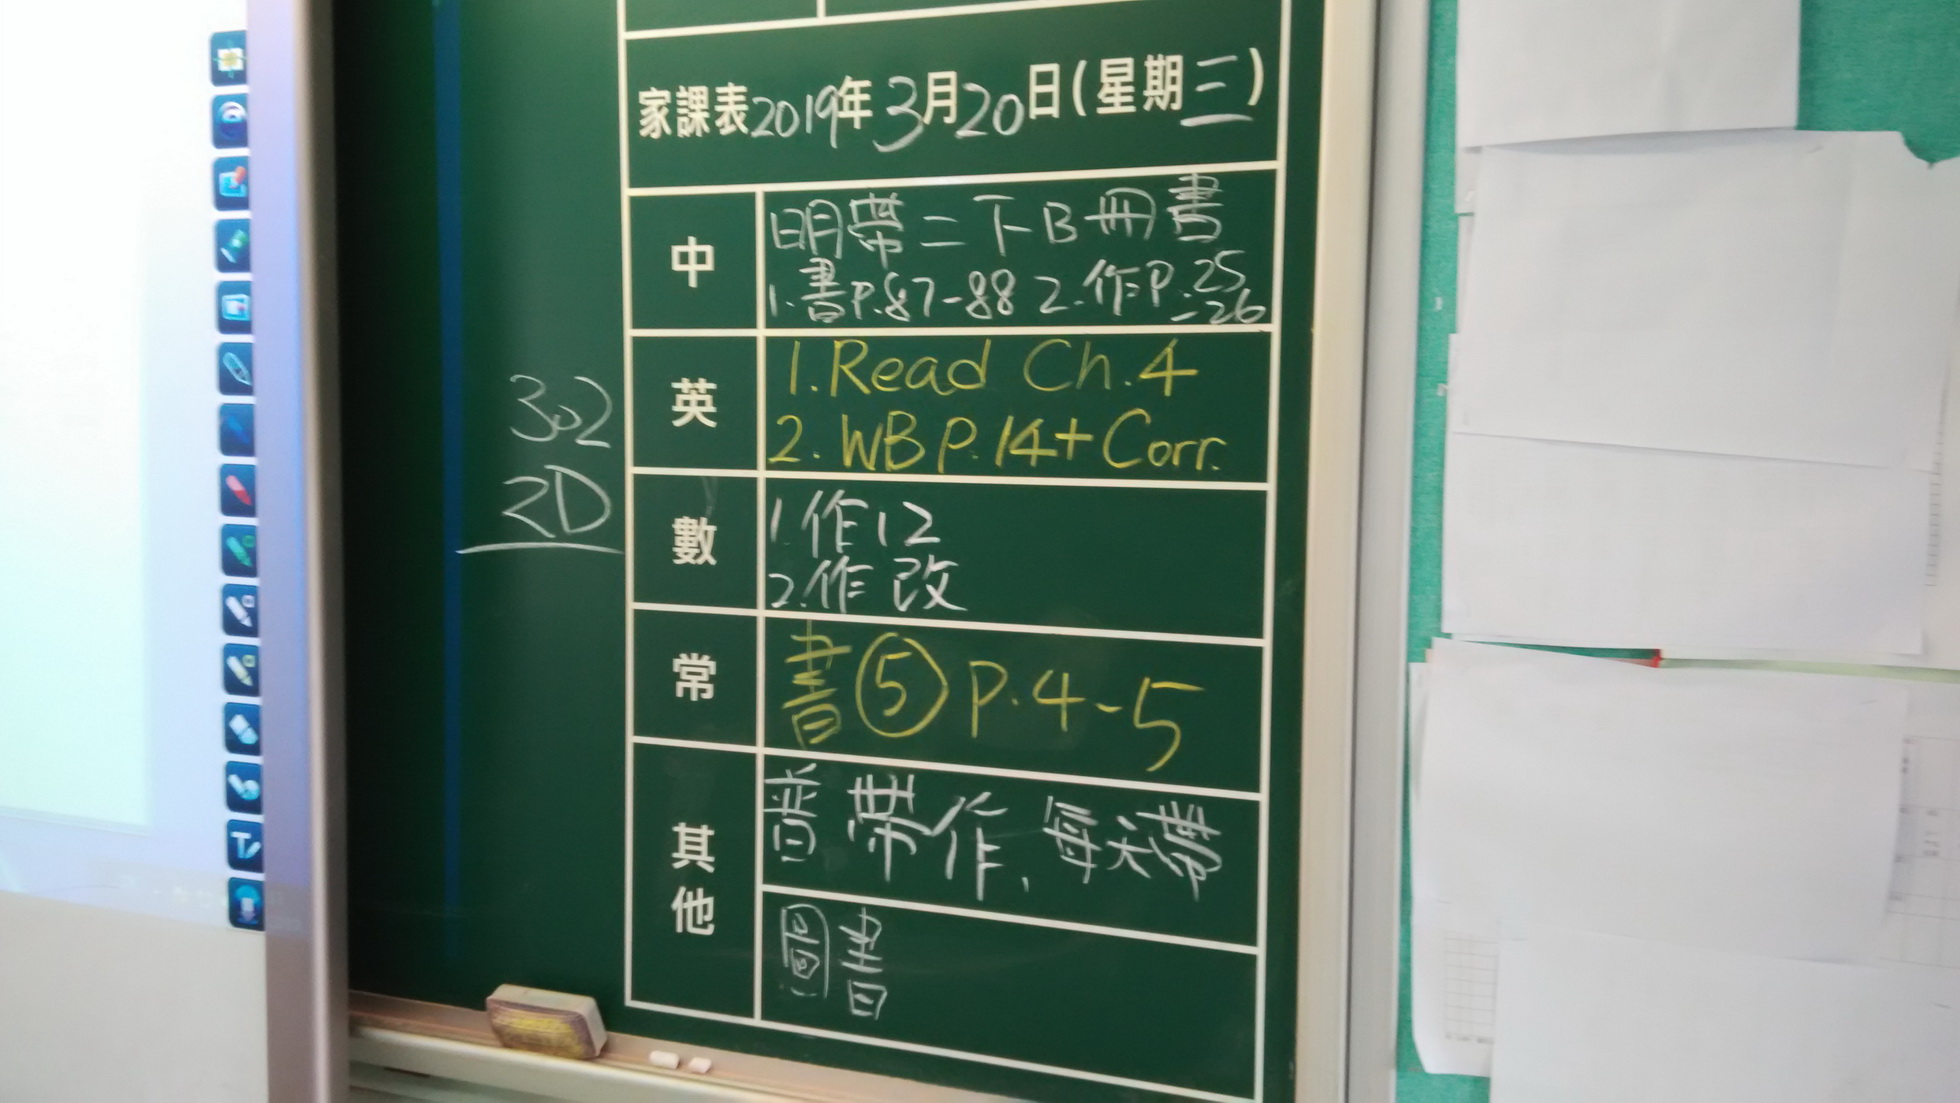 家課表2019年3月20日(星期三)
中
明帶二下B冊書
1.書P.87-88 2.作P.25
-26
英
1.Read Ch.4
2.WB P.14+Corr.
302
2D
數
1.作12
2.作改
常
書⑤P.4-5
其他
普帶作、每天帶
圖書